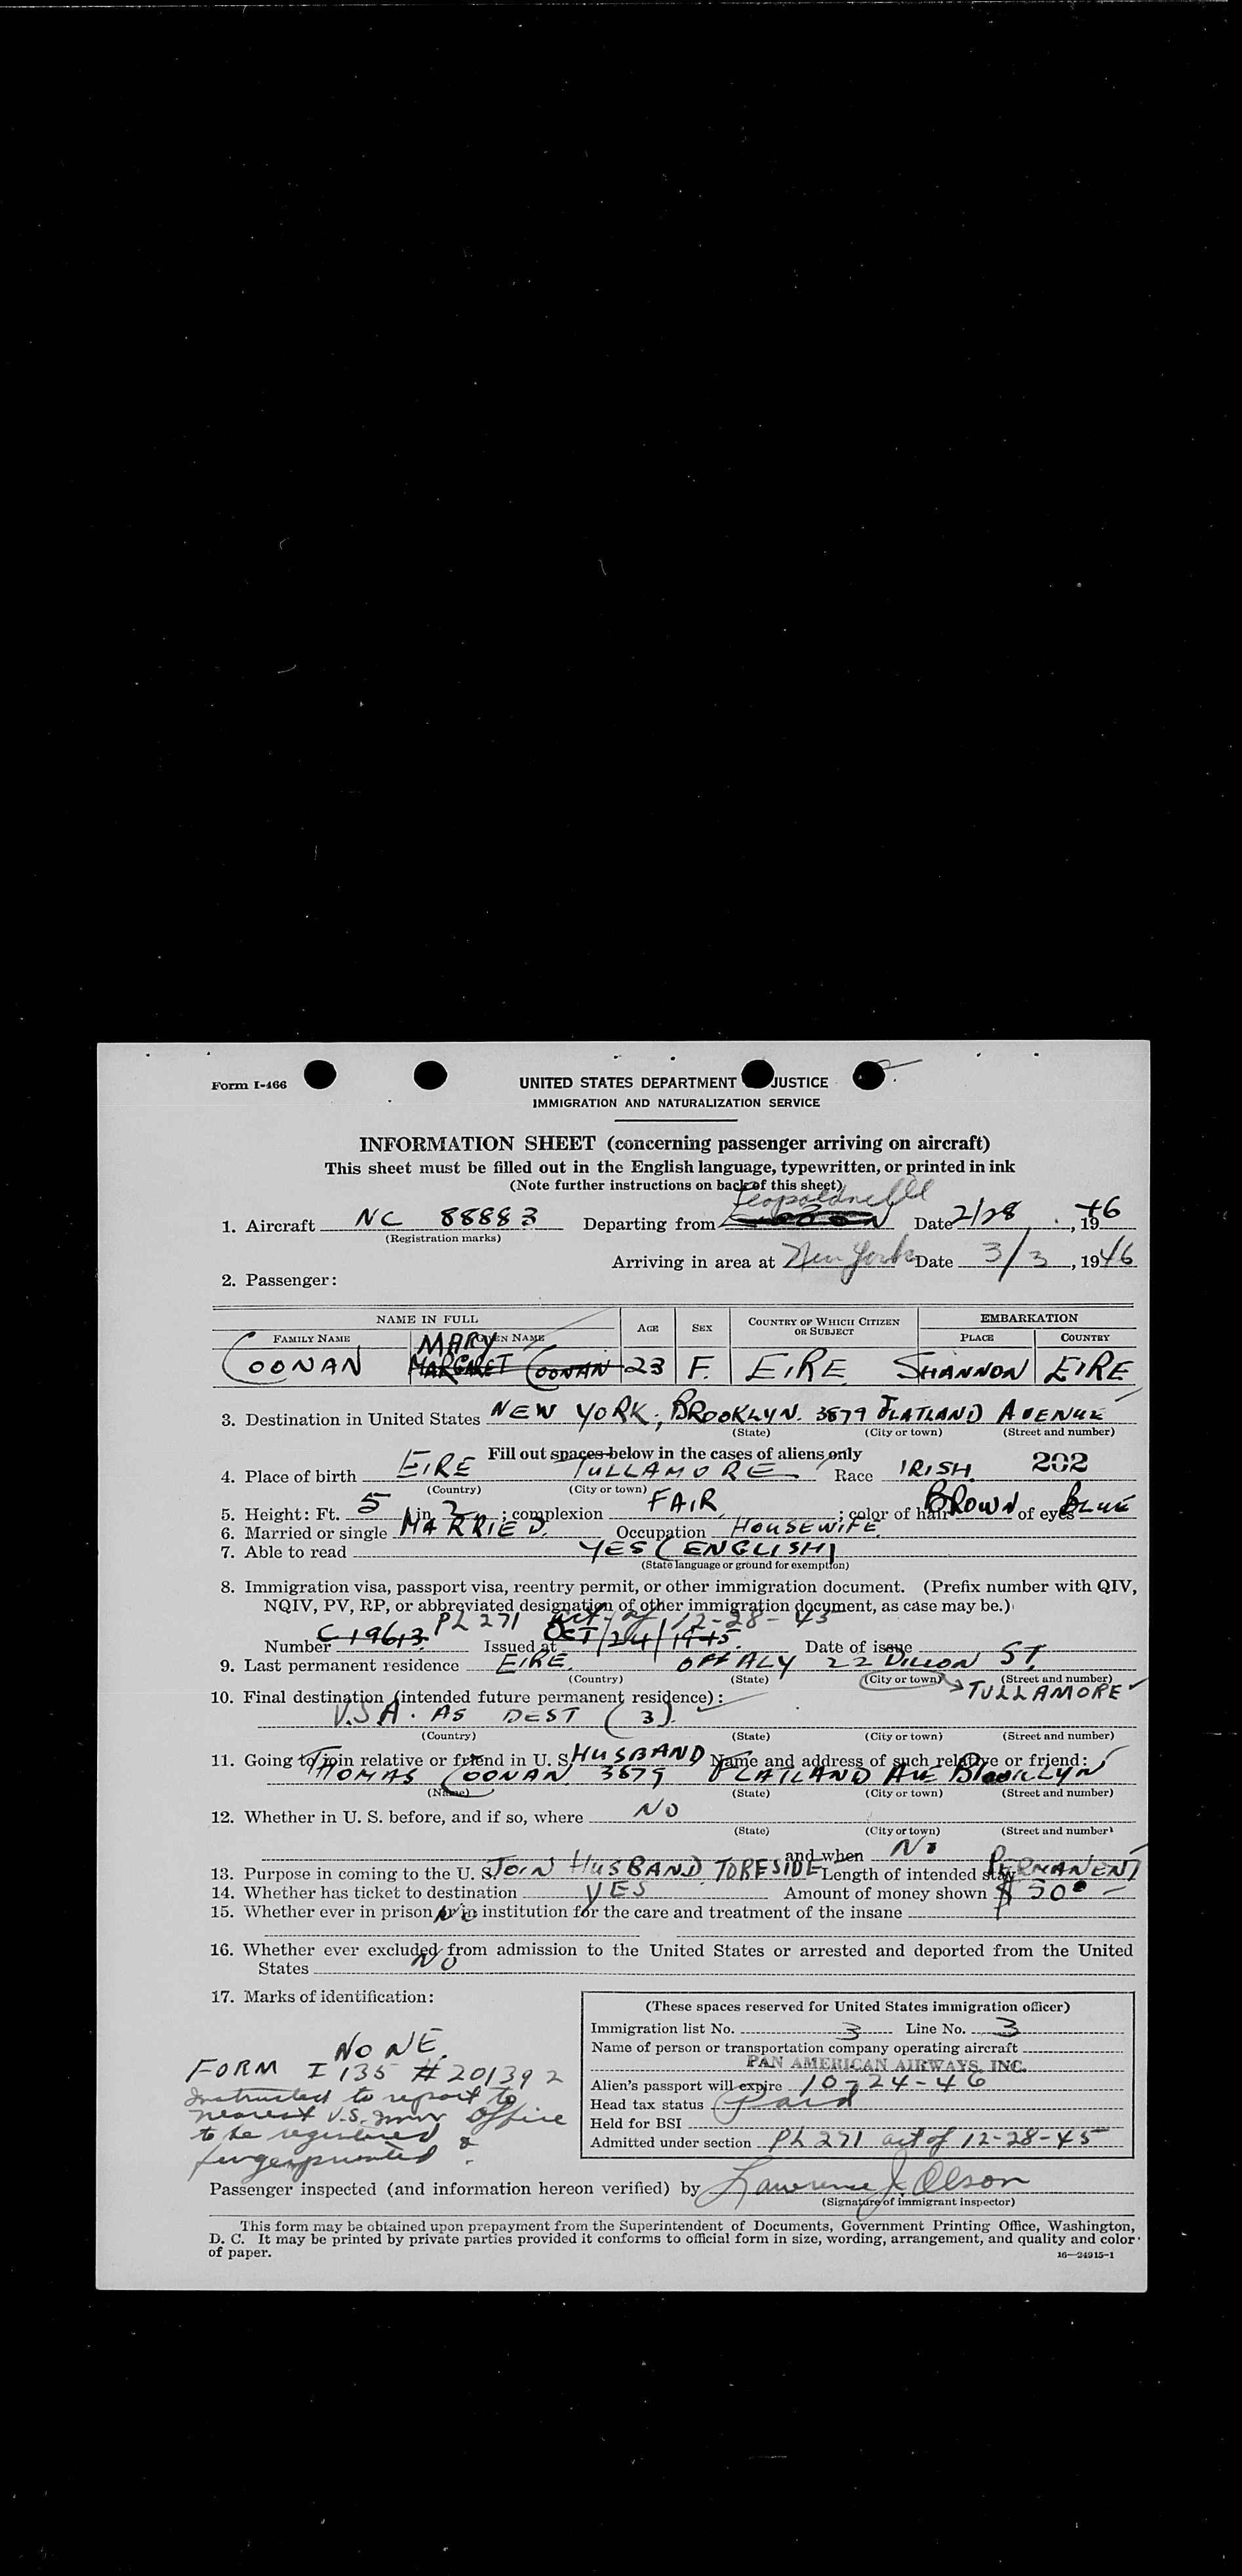 Form I-466
UNITED STATES DEPARTMENT JUSTICE
IMMIGRATION AND NATURALIZATION SERVICE
INFORMATION SHEET (concerning passenger arriving on aircraft)
This sheet must be filled out in the English language, typewritten, or printed in ink
(Note further instructions on back of this sheet)
Leopoldville
1. Aircraft NC 88883 Departing from Date 2/28, 1946
(Registration marks)
Arriving in area at New York Date 3/3, 1946
2. Passenger:
NAME IN FULL AGE SEX COUNTRY OF WHICH CITIZEN OR SUBJECT EMBARKATION
FAMILY NAME GIVEN NAME PLACE COUNTRY
MARY
COONAN MARGARET COONAN 23 F. EIRE SHANNON EIRE
3. Destination in United States NEW YORK, BROOKLYN. 3879 FLATLAND AVENUE
(State) (City or town) (Street and number)
Fill out spaces below in the cases of aliens only
4. Place of birth EIRE TULLAMORE Race IRISH 202
(Country) (City or town)
5. Height: Ft. 5 in. 2; complexion FAIR; color of hair BROWN of eyes BLUE
6. Married or single MARRIED. Occupation HOUSEWIFE
7. Able to read YES (ENGLISH)
(State language or ground for exemption)
8. Immigration visa, passport visa, reentry permit, or other immigration document. (Prefix number with QIV,
NQIV, PV, RP, or abbreviated designation of other immigration document, as case may be.)
PL 271 act of 12-28-45
Number C 19613 Issued at OCT/24/1945. Date of issue
9. Last permanent residence EIRE. OFFALY 22 DILLON ST.
(Country) (State) (City or town) (Street and number)
TULLAMORE
10. Final destination (intended future permanent residence):
U.S.A. AS DEST (3).
(Country) (State) (City or town) (Street and number)
11. Going to join relative or friend in U. S. HUSBAND Name and address of such relative or friend:
THOMAS COONAN 3879 FLATLAND AVE BROOKLYN
(Name) (State) (City or town) (Street and number)
12. Whether in U. S. before, and if so, where NO
(State) (City or town) (Street and number)
and when NO
13. Purpose in coming to the U. S. JOIN HUSBAND TO RESIDE Length of intended stay PERMANENT
14. Whether has ticket to destination YES Amount of money shown $ 50
15. Whether ever in prison or in institution for the care and treatment of the insane NO
16. Whether ever excluded from admission to the United States or arrested and deported from the United
States NO
17. Marks of identification:
NONE.
FORM I 135 # 201392
Instructed to report to
nearest U.S. Imm Office
to be registered &
fingerprinted.
(These spaces reserved for United States immigration officer)
Immigration list No. 3 Line No. 3
Name of person or transportation company operating aircraft
PAN AMERICAN AIRWAYS, INC.
Alien's passport will expire 10-24-46
Head tax status Paid
Held for BSI
Admitted under section PL 271 act of 12-28-45
Passenger inspected (and information hereon verified) by Lawrence J. Olson
(Signature of immigrant inspector)
This form may be obtained upon prepayment from the Superintendent of Documents, Government Printing Office, Washington,
D. C. It may be printed by private parties provided it conforms to official form in size, wording, arrangement, and quality and color
of paper.
16—24915-1